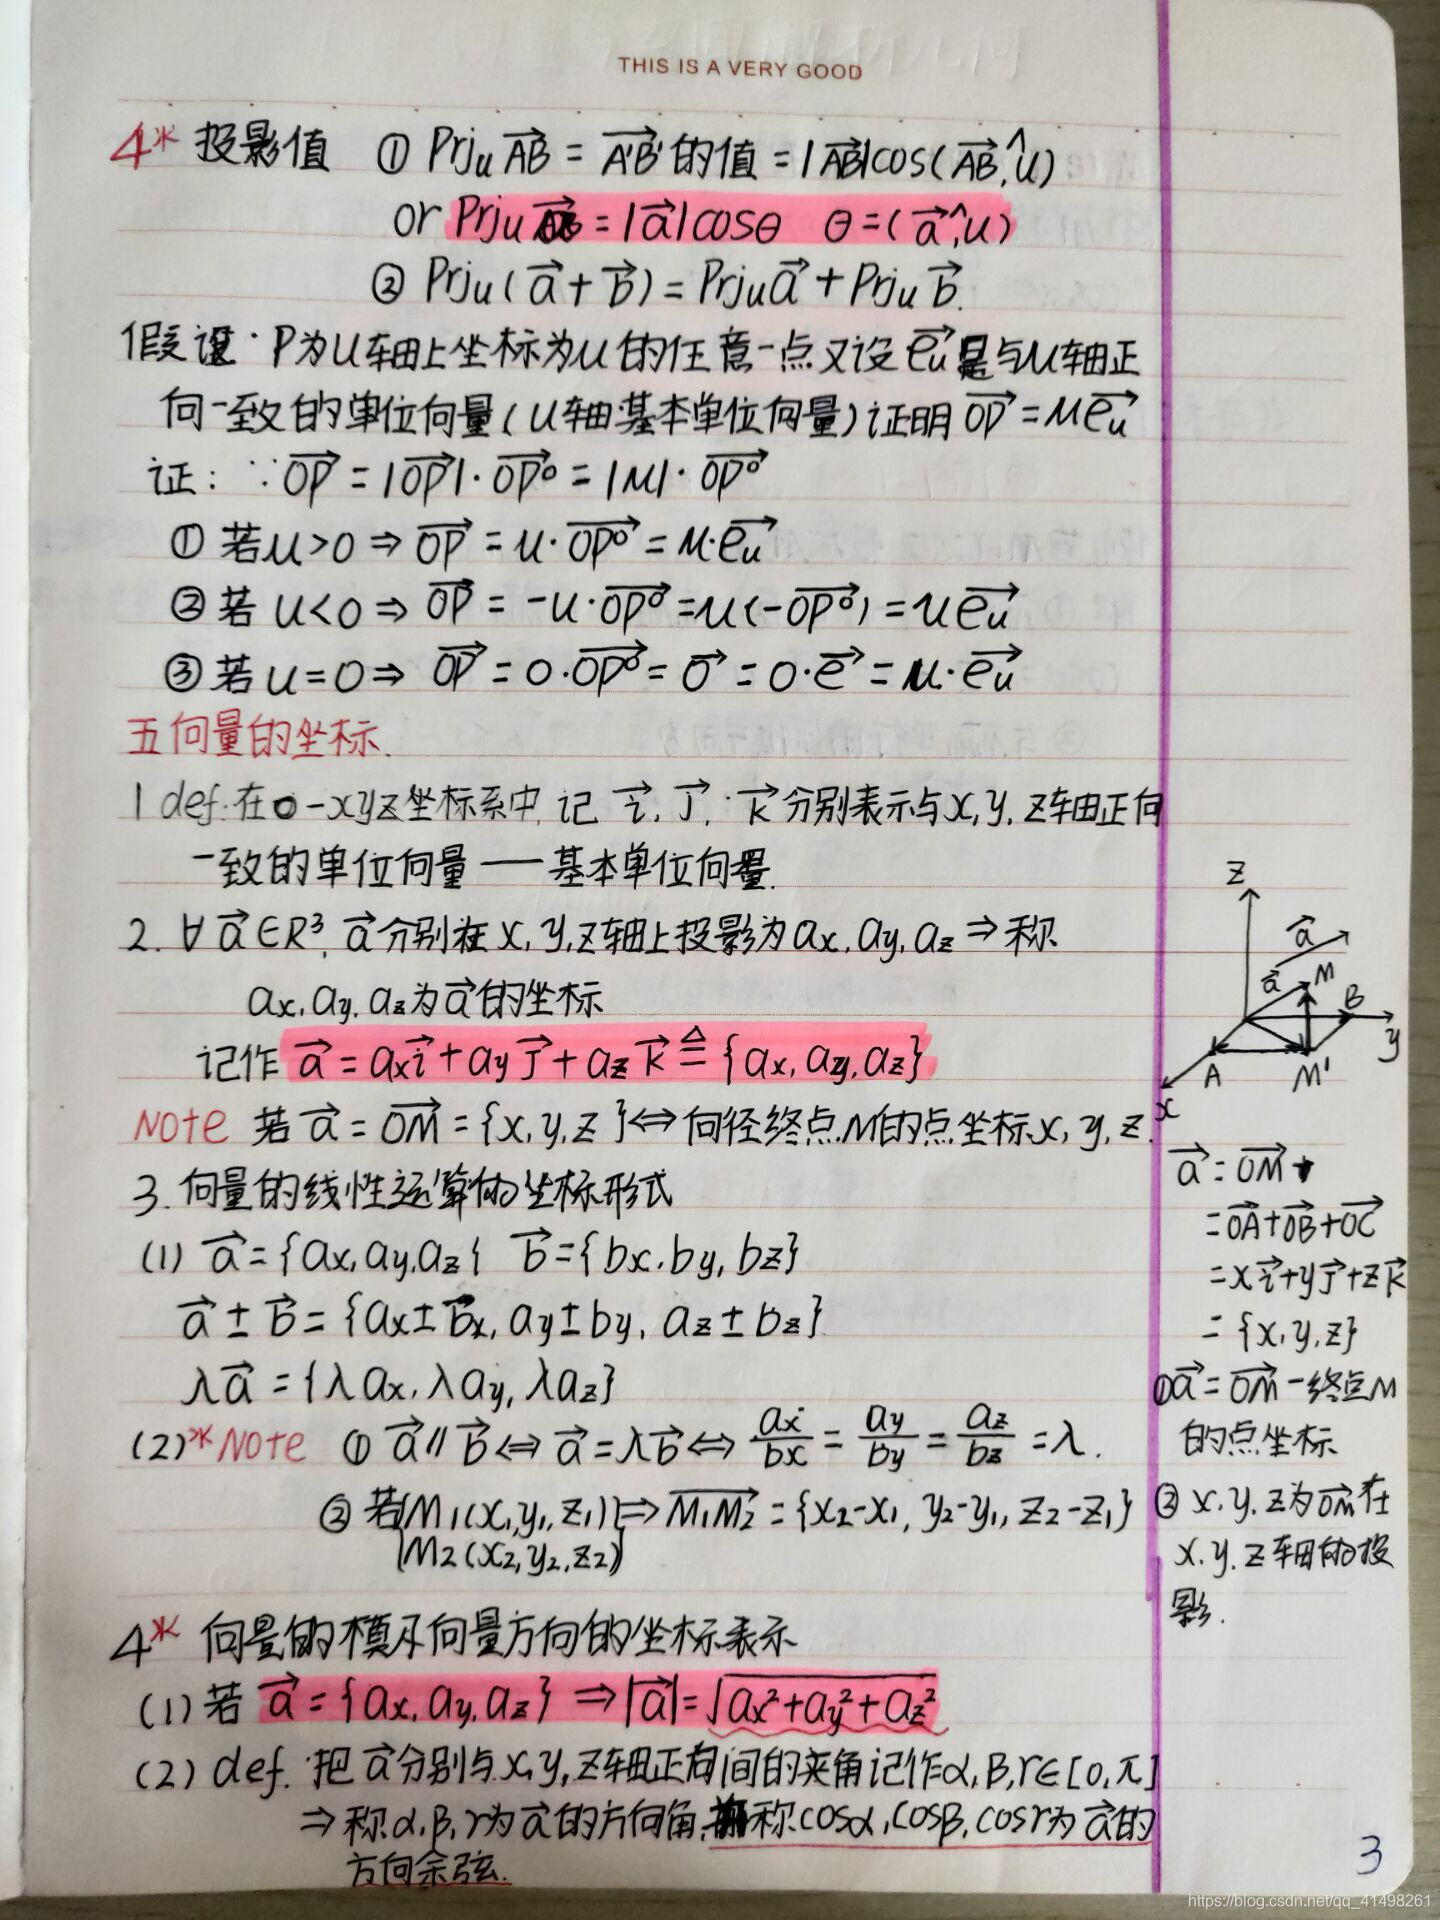 THIS IS A VERY GOOD
4* 投影值 ① Prjᵤ AB→ = A'B'→ 的值 = |AB→|cos(AB→,^u)
or Prjᵤ = |a→|cosθ θ=(a→,^u)
② Prjᵤ(a→+b→) = Prjᵤa→ + Prjᵤb→.
假设·P为u轴上坐标为u的任意一点又设eᵤ→是与u轴正
向一致的单位向量(u轴基本单位向量)证明OP→=ueᵤ→
证: ∵OP→ = |OP→|·OP⁰→ = |u|·OP⁰→
① 若u>0 ⇒ OP→ = u·OP⁰→ = u·eᵤ→
② 若u<0 ⇒ OP→ = -u·OP⁰→ = u(-OP⁰→) = ueᵤ→
③ 若u=0 ⇒ OP→ = 0·OP⁰→ = 0→ = 0·e→ = u·eᵤ→
五 向量的坐标.
1 def:在o-xyz坐标系中,记 i→, j→, k→分别表示与x,y,z轴正向
一致的单位向量——基本单位向量.
2. ∀a→∈R³, a→分别在x,y,z轴上投影为ax,ay,az⇒称
ax,ay,az为a→的坐标
记作 a→ = axi→+ayj→+azk→ ≜ {ax,ay,az}
Note 若a→ = OM→ = {x,y,z}⇔向径终点M的点坐标x,y,z.
3.向量的线性运算的坐标形式
(1) a→={ax,ay,az} b→={bx,by,bz}
a→±b→={ax±bx, ay±by, az±bz}
λa→ = {λax,λay,λaz}
(2)*Note ① a→∥b→⇔a→=λb→⇔ax/bx = ay/by = az/bz = λ.
② 若{M₁(x₁,y₁,z₁)}⇒M₁M₂→ = {x₂-x₁, y₂-y₁, z₂-z₁}
M₂(x₂,y₂,z₂)
4* 向量的模及向量方向的坐标表示
(1)若 a→={ax,ay,az} ⇒|a→|=√(ax²+ay²+az²)
(2) def. 把a→分别与x,y,z轴正向间的夹角记作α,β,γ∈[0,π]
⇒称α,β,γ为a→的方向角,称cosα,cosβ,cosγ为a→的
方向余弦.
z
a→
a→ M
B
y
A M'
x
a→=OM→
=OA→+OB→+OC→
=xi→+yj→+zk→
={x,y,z}
①a→=OM→-终点M
的点坐标
② x,y,z为OM→在
x,y,z轴的投
影.
3
https://blog.csdn.net/qq_41498261